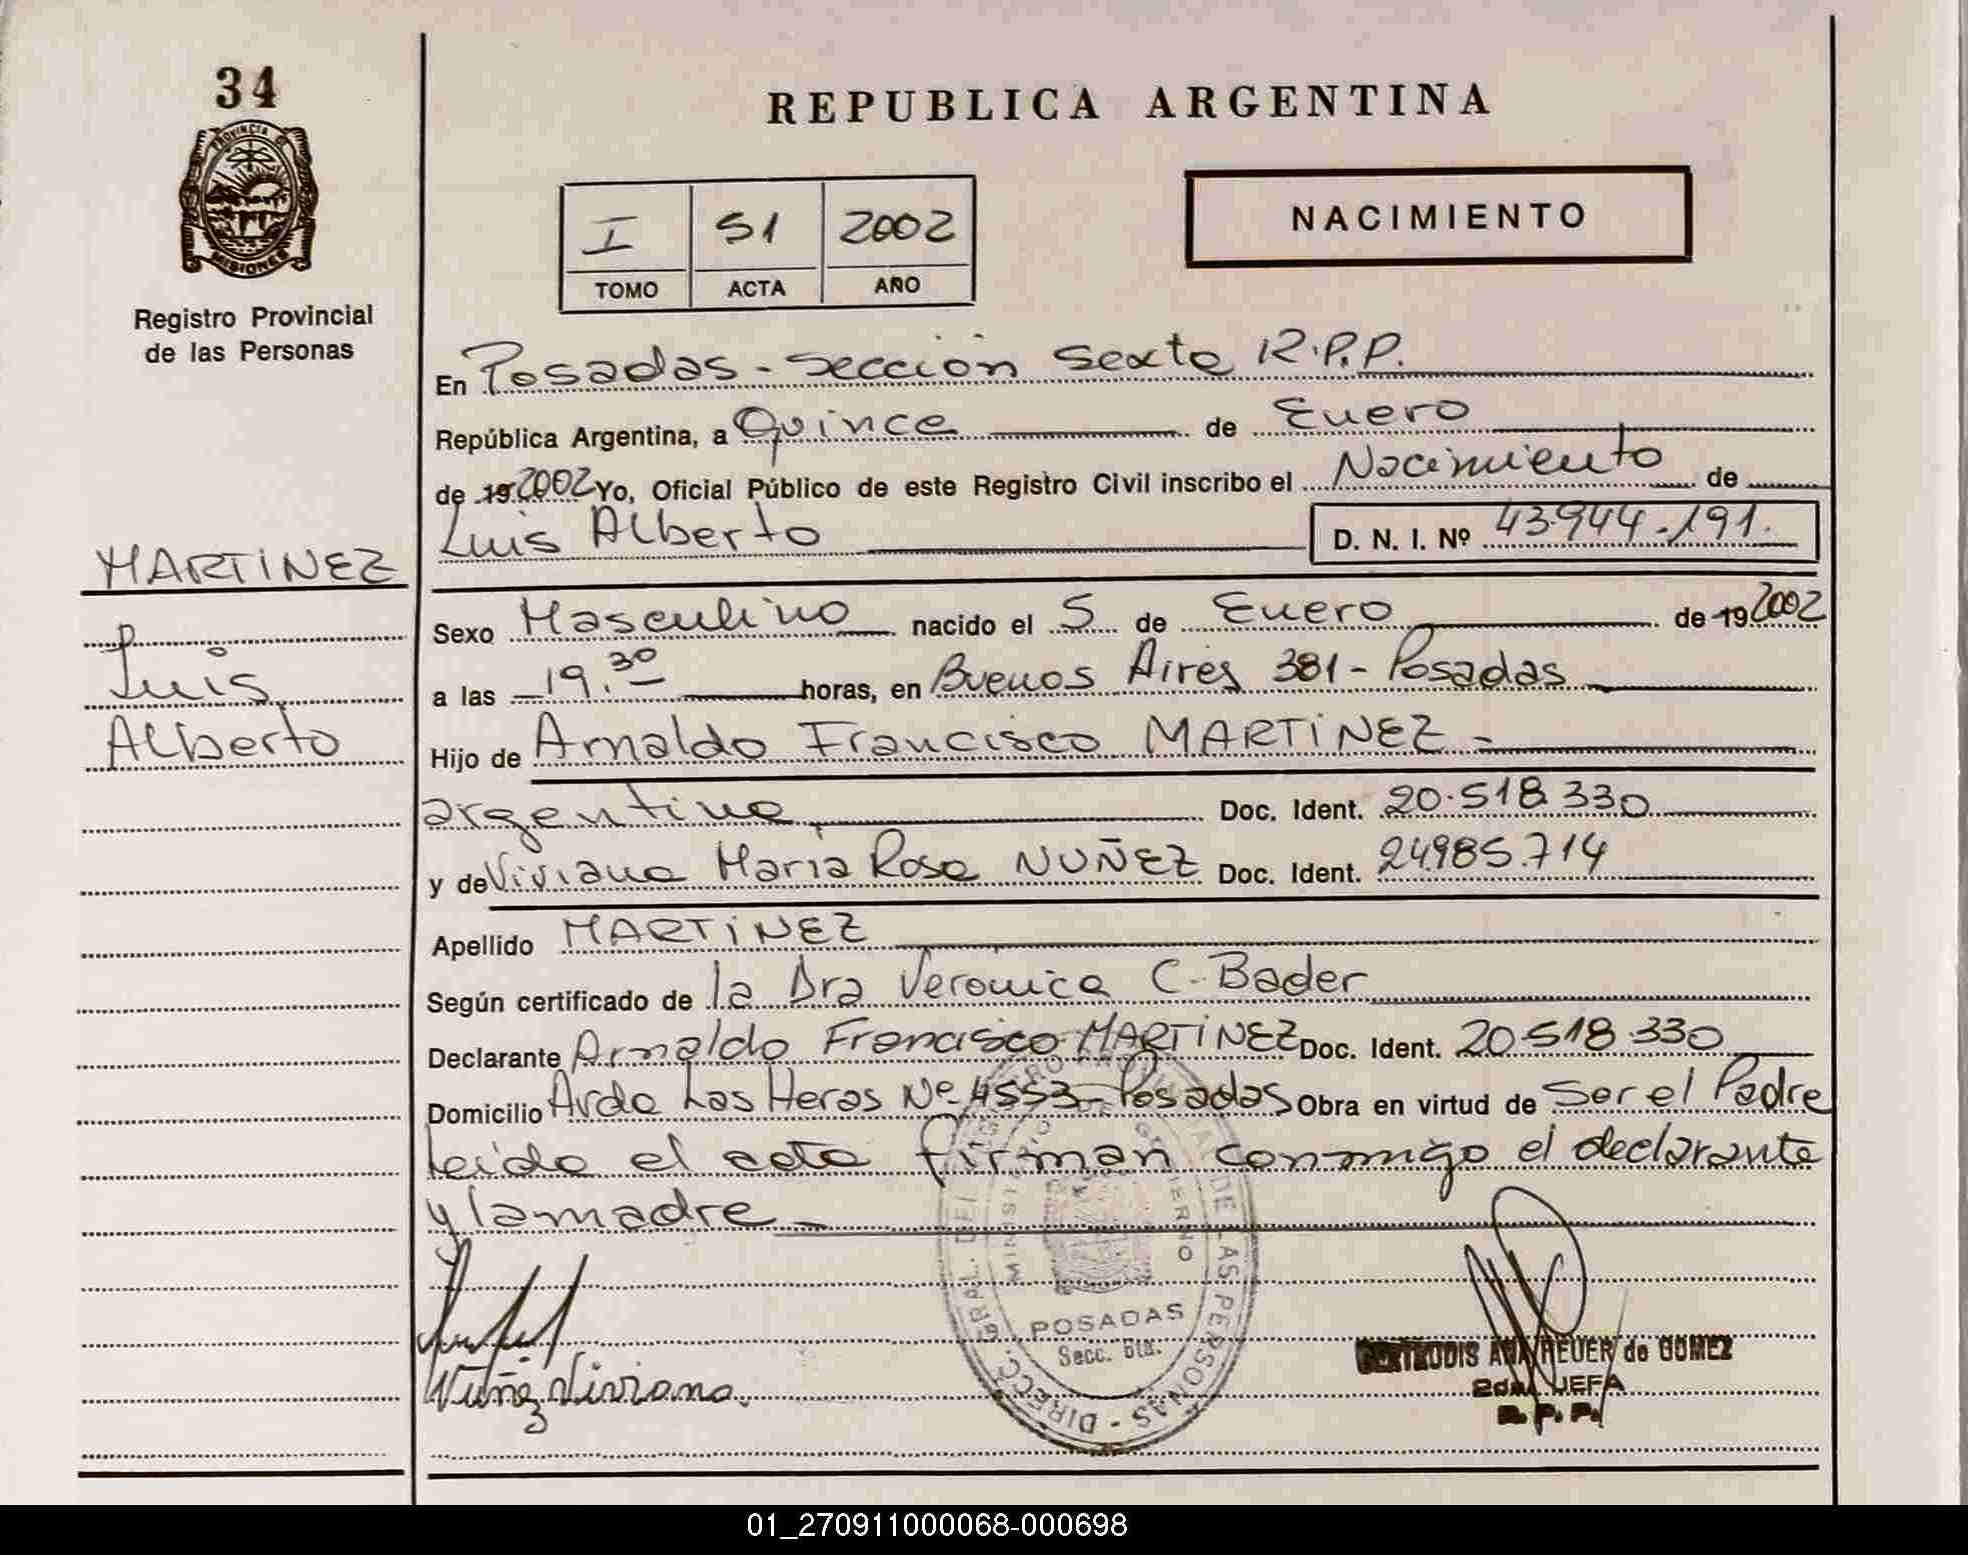 34
PROVINCIA DE
MISIONES
Registro Provincial
de las Personas
MARTINEZ
Luis
Alberto
REPUBLICA ARGENTINA
I 51 2002
TOMO ACTA AÑO
NACIMIENTO
En Posadas - Sección Sexta R.P.P.
República Argentina, a Quince de Enero
de 19 2002 Yo, Oficial Público de este Registro Civil inscribo el Nacimiento de
Luis Alberto D. N. I. Nº 43.944.191.
Sexo Masculino nacido el 5 de Enero de 19 2002
a las 19.30 horas, en Buenos Aires 381 - Posadas
Hijo de Arnaldo Francisco MARTINEZ -
argentino Doc. Ident. 20.518.330
y de Viviana María Rosa NUÑEZ Doc. Ident. 24.985.714
Apellido MARTINEZ
Según certificado de la Dra Verónica C. Bader
Declarante Arnaldo Francisco MARTINEZ Doc. Ident. 20.518.330
Domicilio Avda Las Heras Nº 4553 - Posadas Obra en virtud de Ser el Padre
Leída el acta firman conmigo el declarante
y la madre -
DIRECC. GRAL. DEL REGISTRO PROVINCIAL DE LAS PERSONAS
MINISTERIO DE GOBIERNO
POSADAS
Secc. 6ta.
Nuñez Viviana.
GERTRUDIS ANA REUER de GOMEZ
2da. JEFA
R. P. P.
01_270911000068-000698